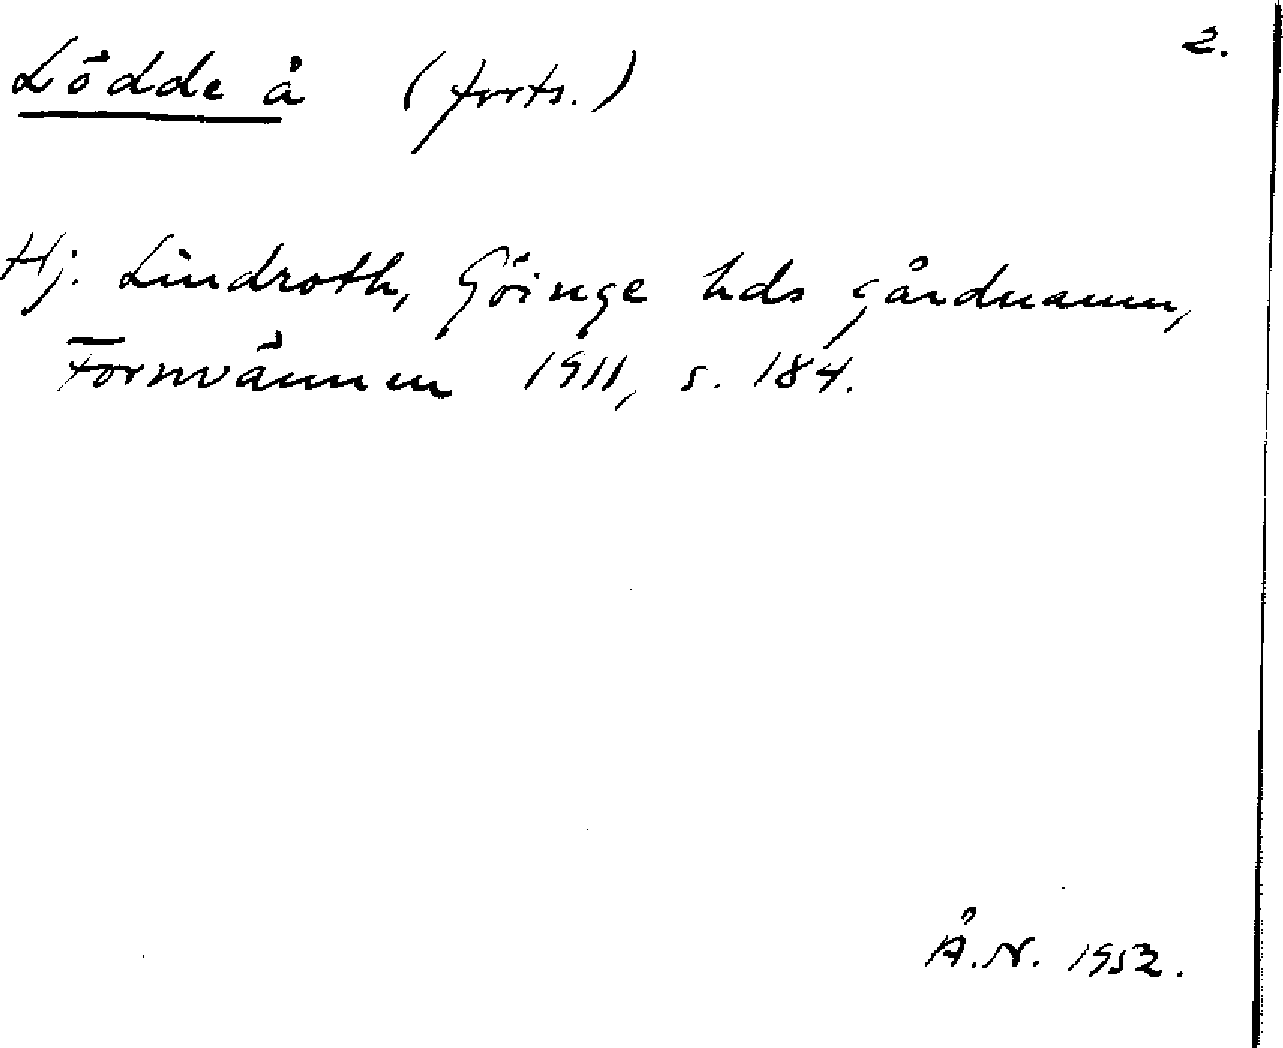 2.
Lödde å (forts.)
Hj. Lindroth, Göinge hds gårdnamn,
Fornvännen 1911, s. 184.
Å.N. 1952.